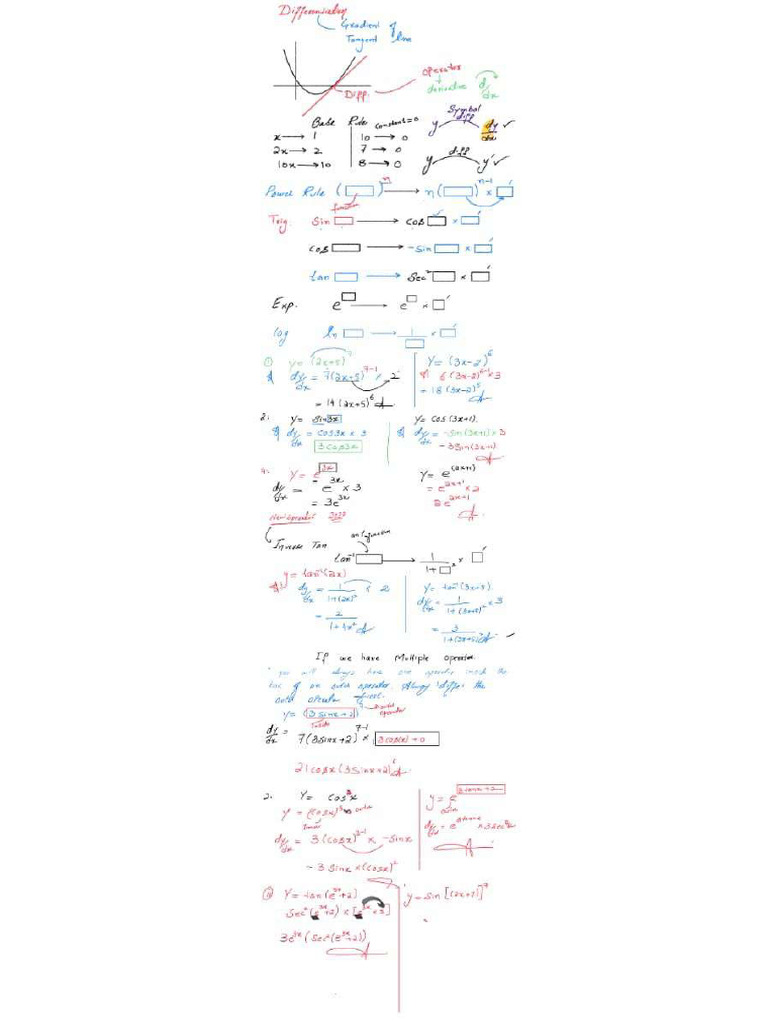 Differentiation
Gradient of
Tangent line
Diff.
Operator
derivative d/dx
Base Rule
x → 1
2x → 2
10x → 10
constant = 0
10 → 0
7 → 0
8 → 0
Symbol
diff
y dy/dx ✓
diff
y y' ✓
Power Rule (□)^n → n(□)^n-1 × □'
Trig. Sin □ → cos □ × □'
cos □ → -Sin □ × □'
tan □ → Sec² □ × □'
Exp. e^□ → e^□ × □'
log ln □ → 1/□ × □'
① y = (2x+5)^7
dy/dx = 7(2x+5)^7-1 × 2
= 14(2x+5)^6
Y = (3x-2)^6
6(3x-2)^6-1 × 3
= 18(3x-2)^5
2. y = sin3x
dy/dx = cos3x × 3
3cos3x
y = cos(3x+1).
dy/dx = -sin(3x+1) × 3
-3sin(3x+1)
4. y = e^3x
dy/dx = e^3x × 3
= 3e^3x
y = e^(2x+1)
= e^2x+1 × 2
2e^2x+1
New operator
Inverse Tan
tan⁻¹ □ → 1/1+□² × □'
y = tan⁻¹(2x)
dy/dx = 1/1+(2x)² × 2
= 2/1+4x²
dy/dx = 1/1+(3x+5)² × 3
= 3/1+(3x+5)²
If we have Multiple operator.
you will always have one operator inside the
box of an outer operator. Always diff the
outer operator first.
y = (3sinx+2)^7
Inside
dy/dx = 7(3sinx+2)^7-1 × 3cos(x)+0
21cosx(3sinx+2)^6
2. Y = cos³x
y = (cosx)³ outer
Inner
dy/dx = 3(cosx)^3-1 × -sinx
-3sinx × (cosx)²
Y = tan(e^3x+2)
Sec²(e^3x+2) × [e^3x × 3]
3e^3x(Sec²(e^3x+2))
y = sin[(2x+1)]^7